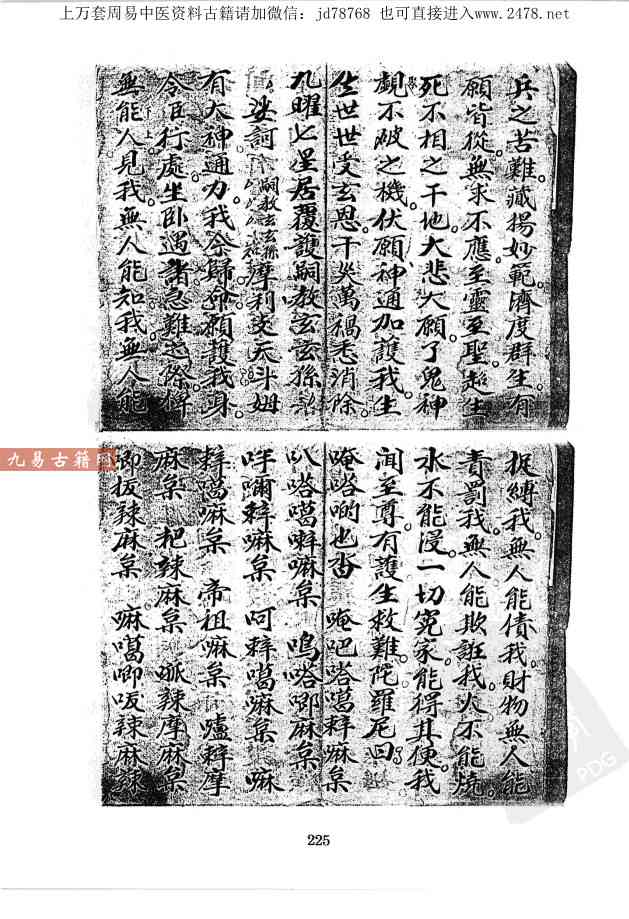 上万套周易中医资料古籍请加微信：jd78768 也可直接进入www.2478.net
兵之苦難藏揚妙範濟度群生有
願皆從無求不應至靈至聖超生
死不相之干地大悲大願了鬼神
覩不陂之機伏願神通加護我生
生世世受玄恩干災萬禍悉消除
九曜七星居覆護嗣教玄玄孫
娑訶 嗣教玄玄孫 摩利支天斗姆
有大神通力我今歸命願護我身
令臣行處坐卧遇諸急難
無能人見我無人能知我無人能
捉縛我無人能債我財物無人能
責罰我無人能欺誑我火不能燒
水不能浸一切冤家能得其便我
聞至尊有護生救難陀羅尼曰
唵嗒喲也 唵吧嗒噶辢嘛
叭嗒噶嘛 嗚嗒唧麻
吽嘛 呵辢噶嘛 嘛
辢噶嘛 帝祖嘛 嚧辢摩
麻 把辣麻 呱辣摩麻
唧扳辣麻 嘛噶唧叹辣麻辣
九易古籍网
PDG
225